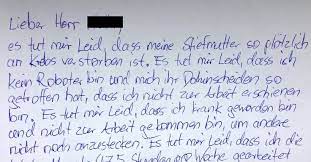 Lieber Herr
es tut mir Leid, dass meine Stiefmutter so plötzlich
an Krebs verstorben ist. Es tut mir Leid, dass ich
kein Roboter bin und mich ihr Dahinscheiden so
getroffen hat, dass ich nicht zur Arbeit erschienen
bin. Es tut mir Leid, dass ich krank geworden bin
und nicht zur Arbeit gekommen bin, um andere
nicht noch anzustecken. Es tut mir Leid, dass ich die
Stunden Woche gearbeitet